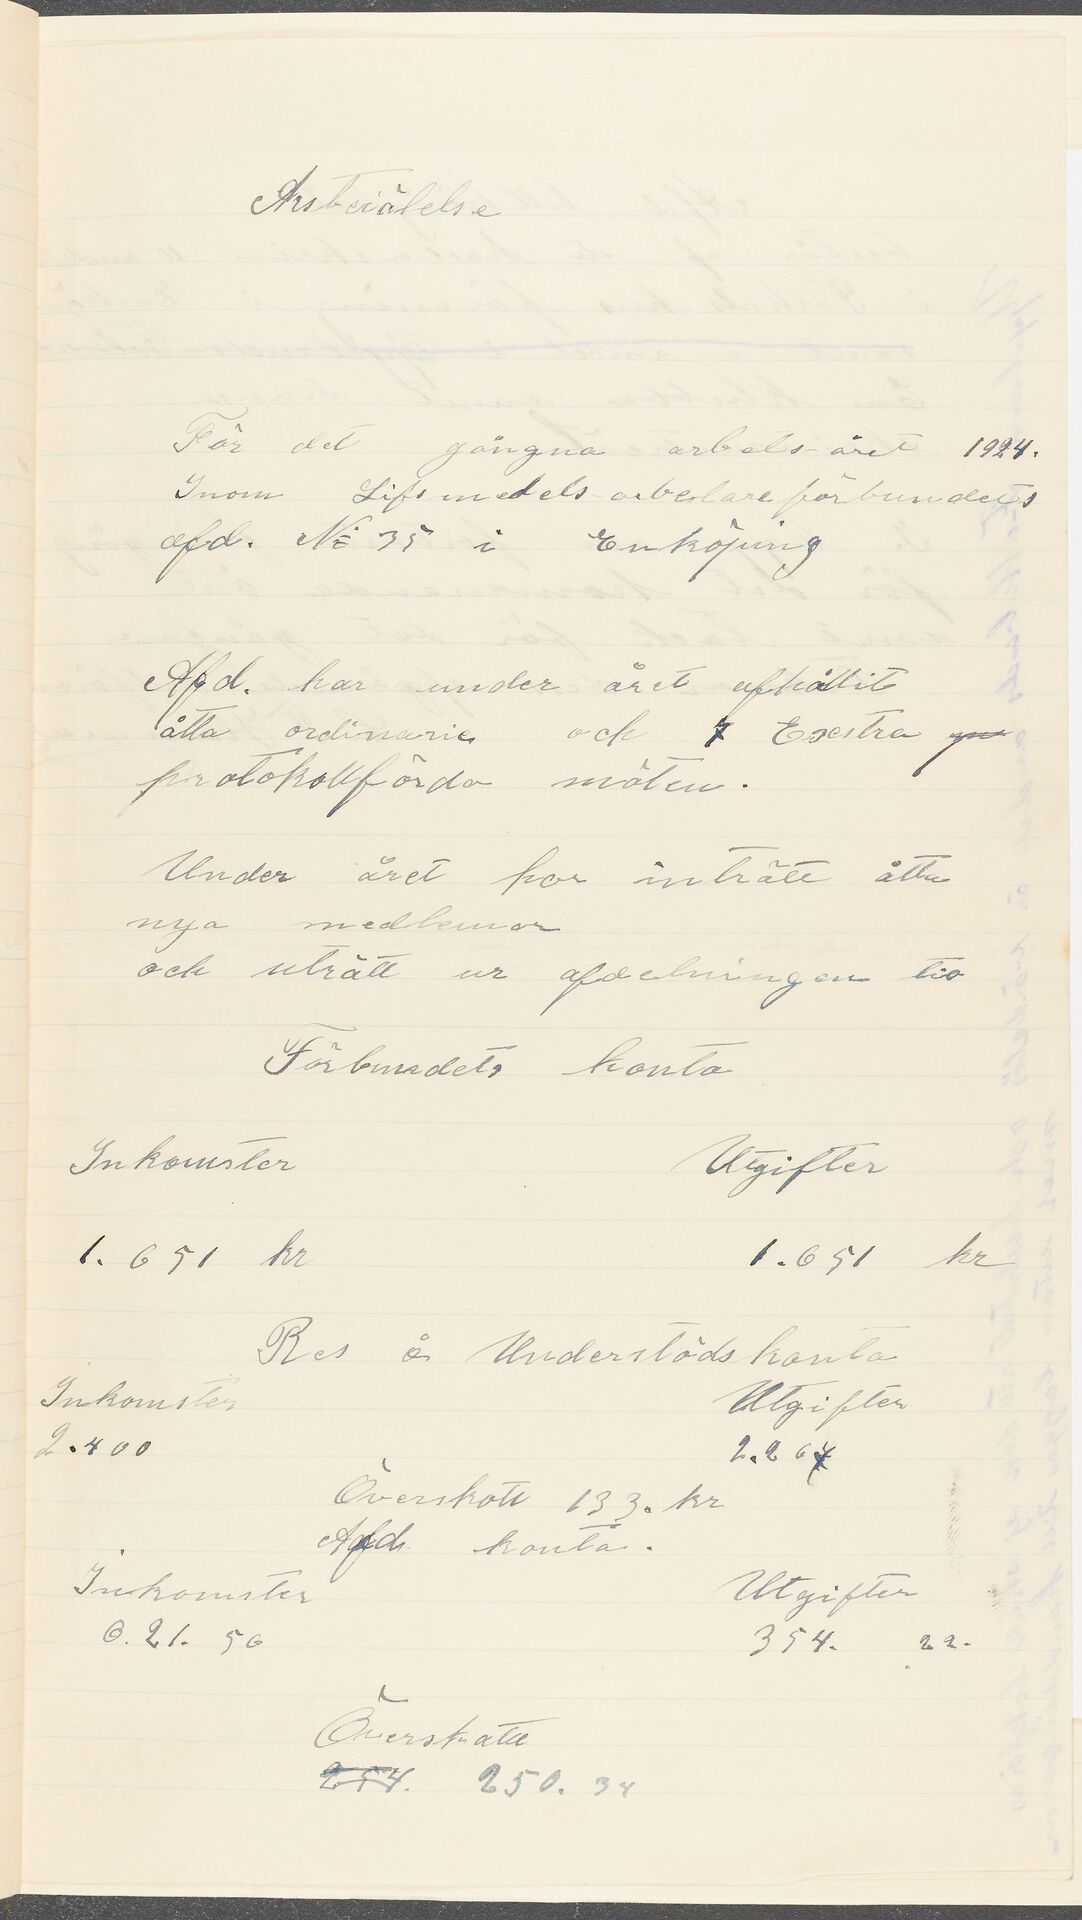 Årsberälelse
För det gångna arbets-året 1924.
Inom Lifsmedels-arbetareförbundets
afd. No 35 i Enköping
Afd. har under året afhållit
åtta ordinarie och 7 Exstra
protokollförda möten.
Under året har inträtt åtta
nya medlemar
och uträtt ur afdelningen tio
Förbundets konto
Inkomster Utgifter
1.651 kr 1.651 kr
Res å Understöds konto
Inkomster Utgifter
2.400 2.267
Överskott 133. kr
Afd. konto.
Inkomster Utgifter
6.21. 56 354. 22.
Överskott
254. 250. 34